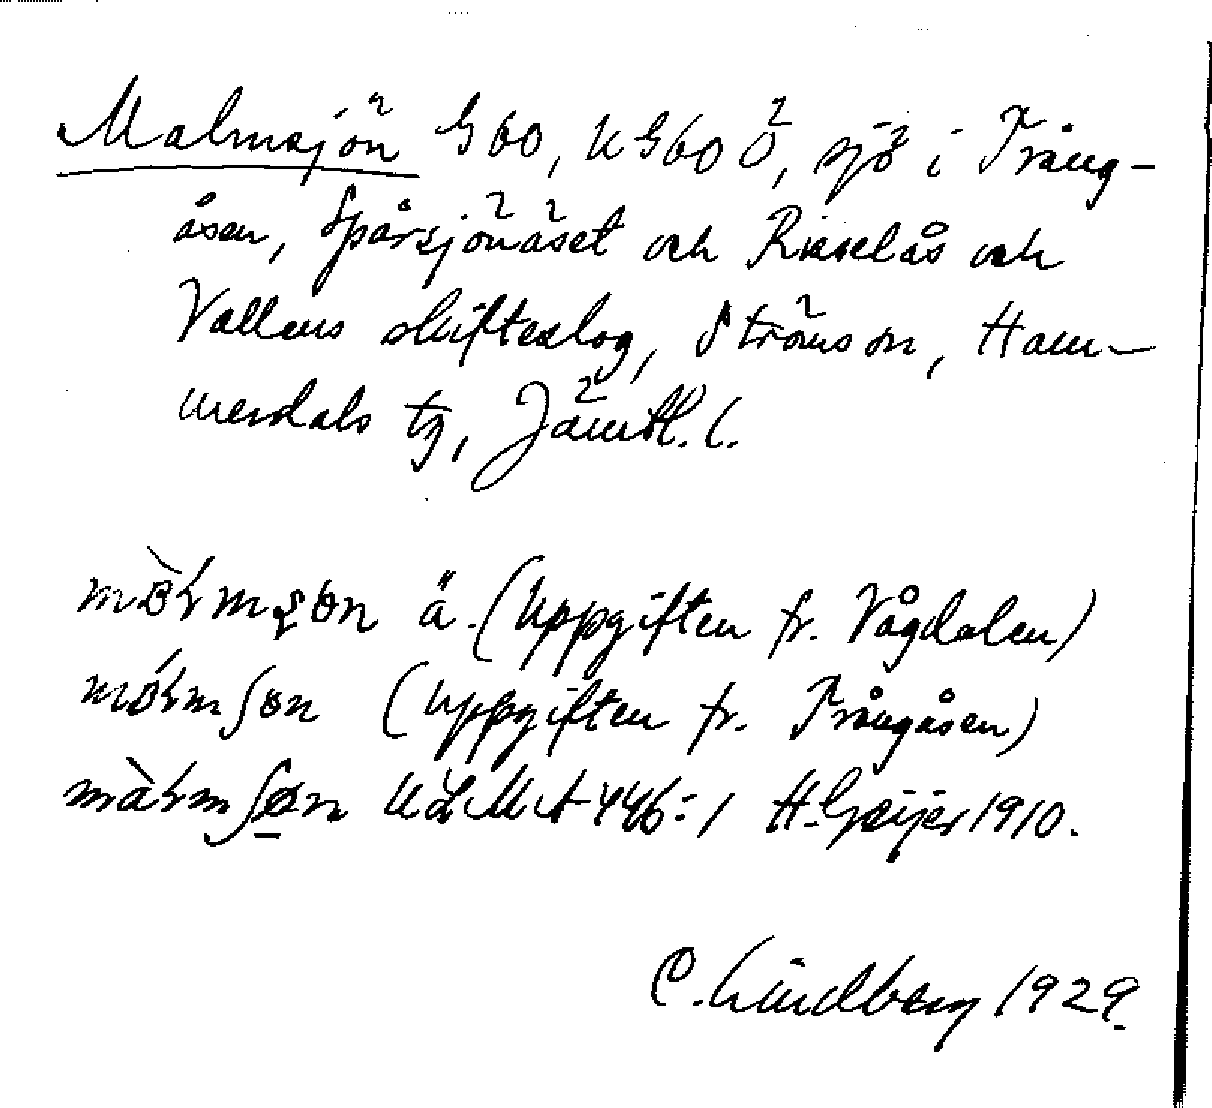 Malmsjön G60, KG60 Ö, sjö i Trång-
åsen, Spårsjönäset och Risselås och
Vallens skifteslag, Ströms sn, Ham-
merdals tg, Jämtl. l.
ä. (Uppgiften fr. Vågdalen)
(Uppgiften fr. Trångåsen)
ULMA 446:1 H. Geijer 1910.
C. Lindberg 1929.